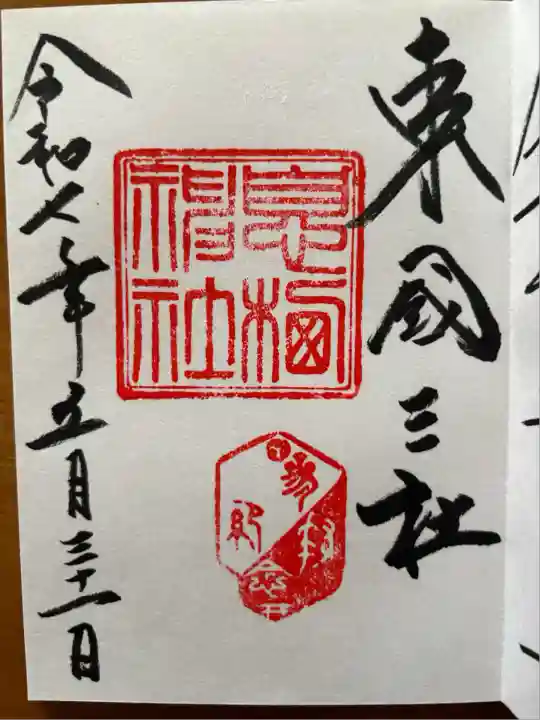 東國三社
息栖神社
令和八年五月三十一日